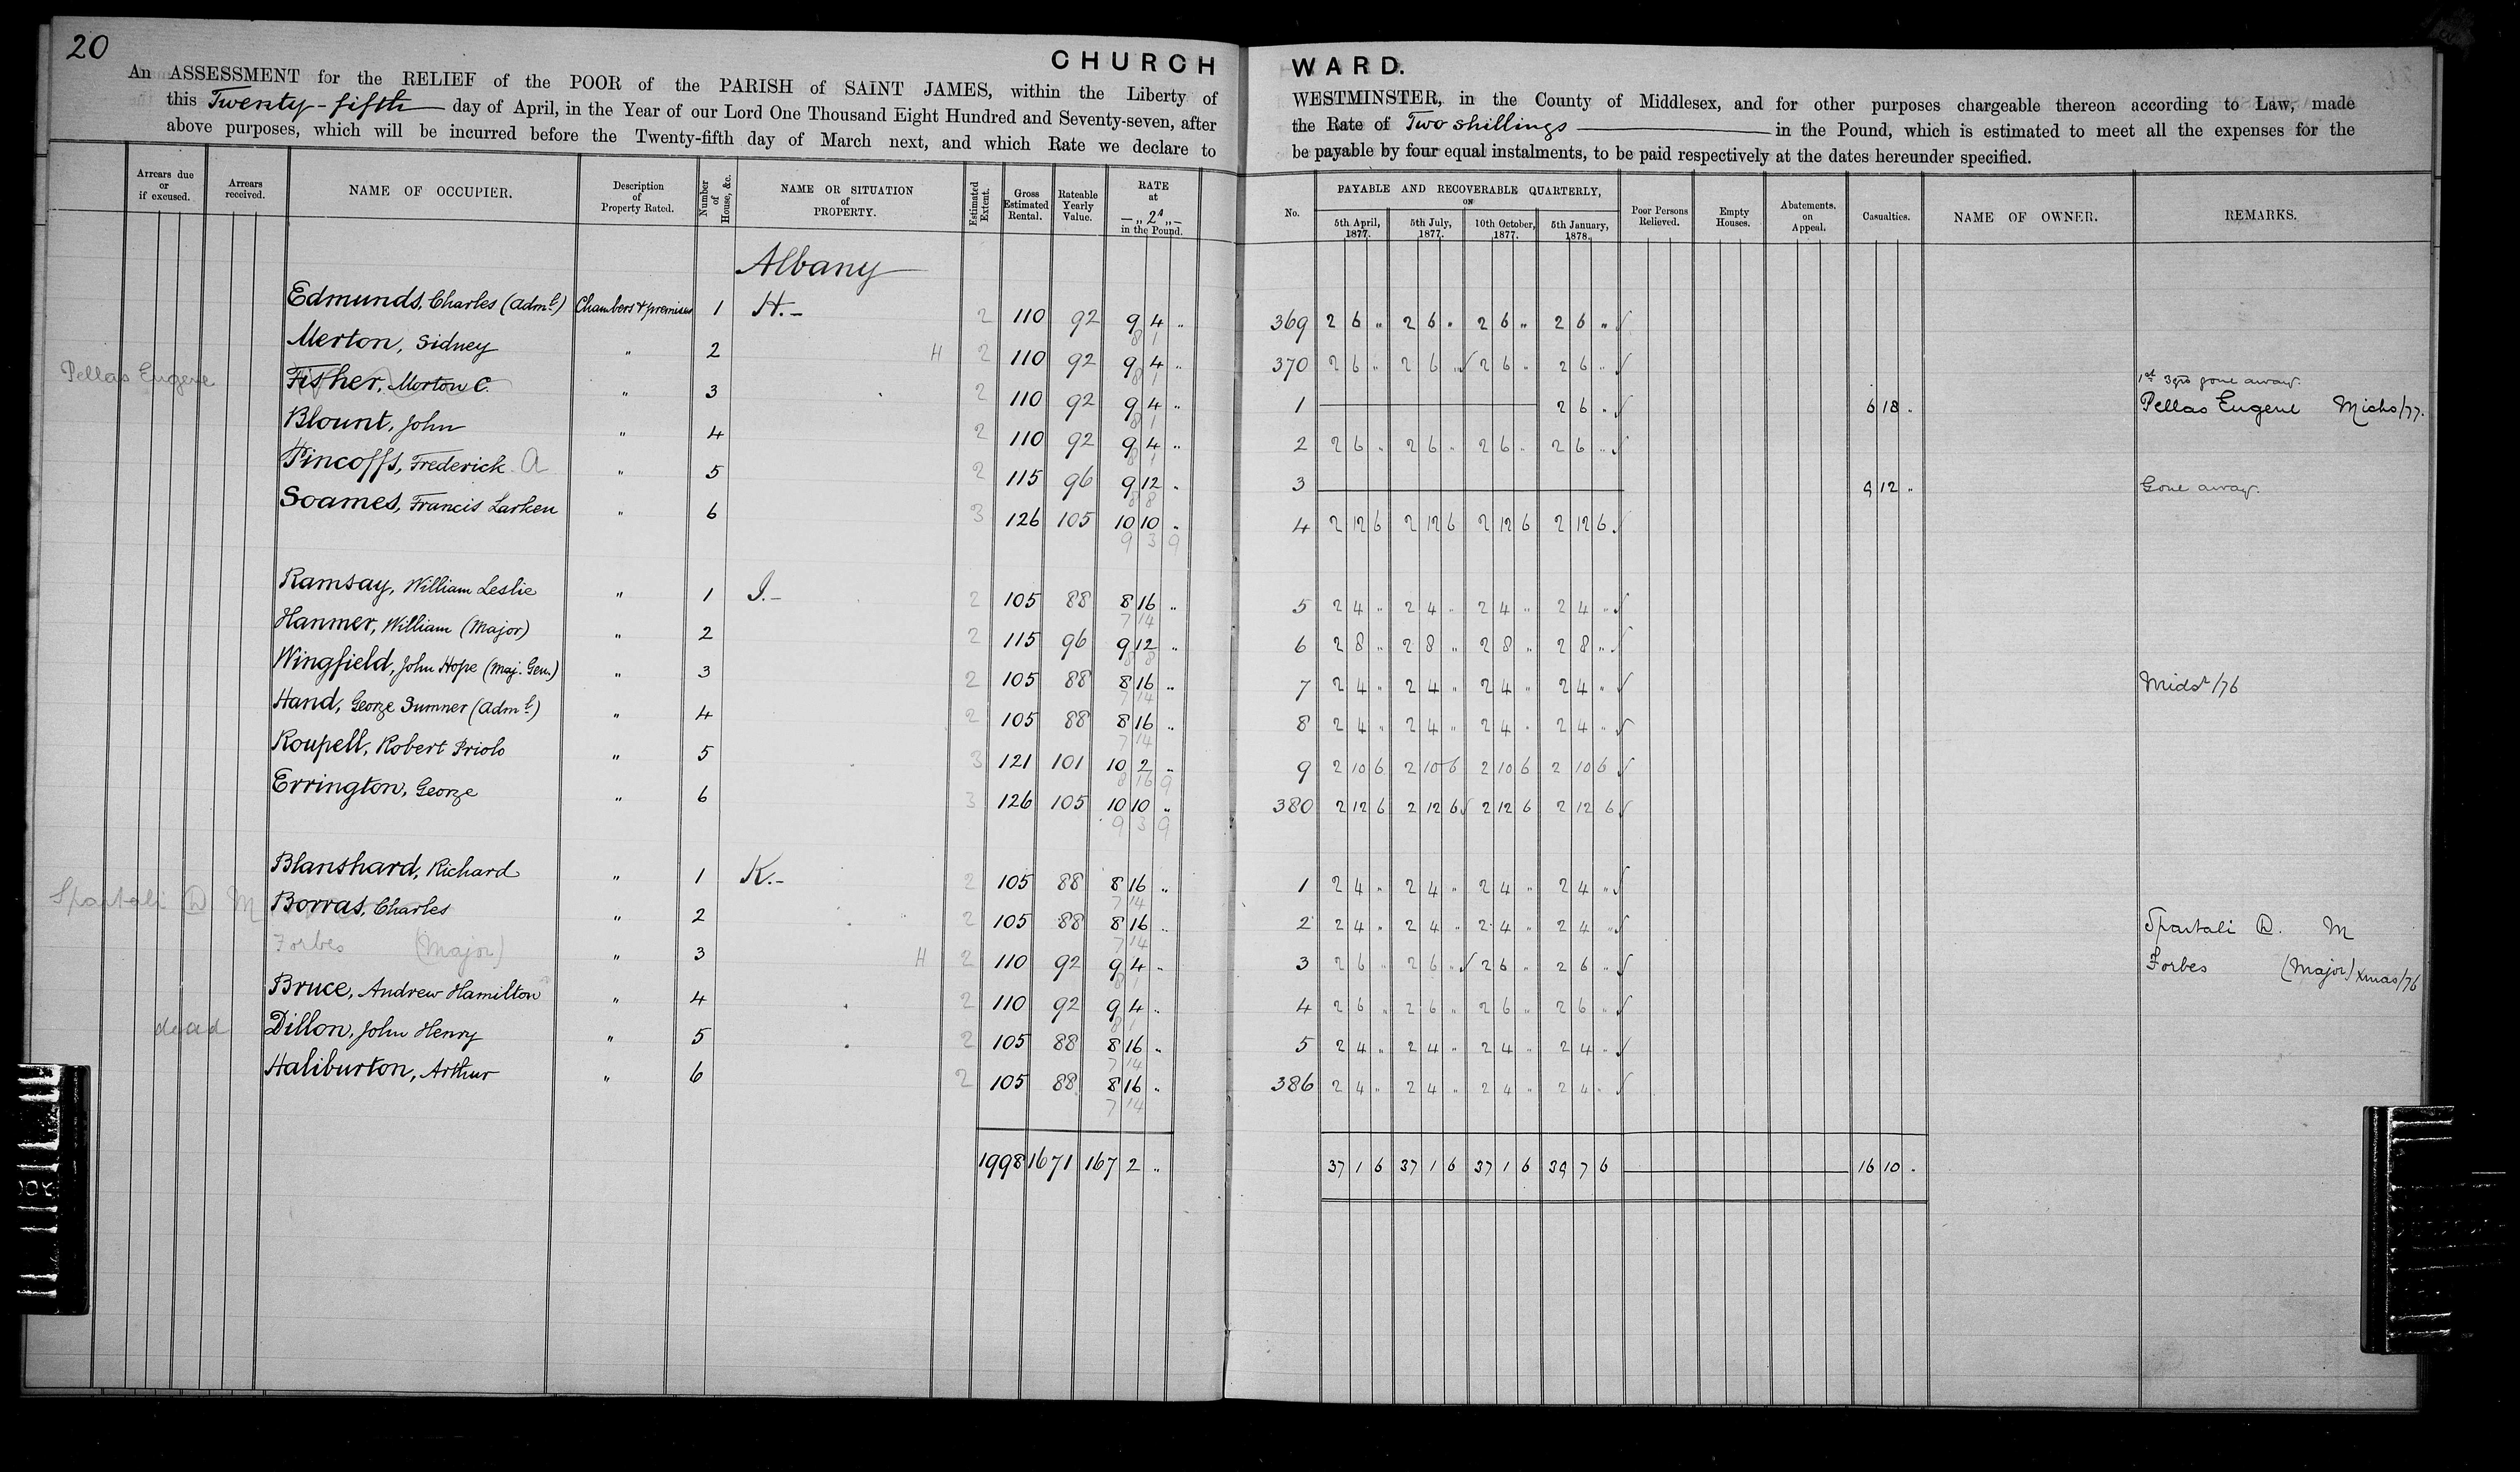 20
CHURCH WARD.
An ASSESSMENT for the RELIEF of the POOR of the PARISH of SAINT JAMES, within the Liberty of WESTMINSTER, in the County of Middlesex, and for other purposes chargeable thereon according to Law, made
this Twenty-fifth day of April, in the Year of our Lord One Thousand Eight Hundred and Seventy-seven, after the Rate of Two shillings in the Pound, which is estimated to meet all the expenses for the
above purposes, which will be incurred before the Twenty-fifth day of March next, and which Rate we declare to be payable by four equal instalments, to be paid respectively at the dates hereunder specified.
Arrears due or if excused. Arrears received. NAME OF OCCUPIER. Description of Property Rated. Number of House, &c. NAME OR SITUATION of PROPERTY. Estimated Extent. Gross Estimated Rental. Rateable Yearly Value. RATE at — „ 2s „ — in the Pound. No. PAYABLE AND RECOVERABLE QUARTERLY, ON 5th April, 1877. 5th July, 1877. 10th October, 1877. 5th January, 1878. Poor Persons Relieved. Empty Houses. Abatements. on Appeal. Casualties. NAME OF OWNER. REMARKS.
Albany
Edmunds, Charles (Adml) Chambers & premises 1 H.- 2 110 92 9 4 „ 369 2 6 „ 2 6 „ 2 6 „ 2 6 „
8 1
Merton, Sidney „ 2 H 2 110 92 9 4 „ 370 2 6 „ 2 6 „ 2 6 „ 2 6 „
8 1
1st 3 qrs gone away.
Pellas Eugene Fisher, Morton C. „ 3 2 110 92 9 4 „ 1 2 6 „ 6 18 „ Pellas Eugene Michs/77.
8 1
Blount, John „ 4 2 110 92 9 4 „ 2 2 6 „ 2 6 „ 2 6 „ 2 6 „
8 1
Pincoffs, Frederick A „ 5 2 115 96 9 12 „ 3 9 12 „ Gone away.
8 8
Soames, Francis Larken „ 6 3 126 105 10 10 „ 4 2 12 6 2 12 6 2 12 6 2 12 6
9 3 9
Ramsay, William Leslie „ 1 I.- 2 105 88 8 16 „ 5 2 4 „ 2 4 „ 2 4 „ 2 4 „
7 14
Hanmer, William (Major) „ 2 2 115 96 9 12 „ 6 2 8 „ 2 8 „ 2 8 „ 2 8 „
8 8
Wingfield, John Hope (Maj. Gen.) „ 3 2 105 88 8 16 „ 7 2 4 „ 2 4 „ 2 4 „ 2 4 „ Midsr/76
7 14
Hand, George Sumner (Adml) „ 4 2 105 88 8 16 „ 8 2 4 „ 2 4 „ 2 4 „ 2 4 „
7 14
Roupell, Robert Priolo „ 5 3 121 101 10 2 „ 9 2 10 6 2 10 6 2 10 6 2 10 6
8 16 9
Errington, George „ 6 3 126 105 10 10 „ 380 2 12 6 2 12 6 2 12 6 2 12 6
9 3 9
Blanshard, Richard „ 1 K.- 2 105 88 8 16 „ 1 2 4 „ 2 4 „ 2 4 „ 2 4 „
7 14
Spartali D. M Borras, Charles „ 2 2 105 88 8 16 „ 2 2 4 „ 2 4 „ 2 4 „ 2 4 „ Spartali D. M
7 14
Forbes (Major) „ 3 H 2 110 92 9 4 „ 3 2 6 „ 2 6 „ 2 6 „ 2 6 „ Forbes (Major) Xmas/76
8 1
Bruce, Andrew Hamilton „ 4 2 110 92 9 4 „ 4 2 6 „ 2 6 „ 2 6 „ 2 6 „
8 1
dead Dillon, John Henry „ 5 2 105 88 8 16 „ 5 2 4 „ 2 4 „ 2 4 „ 2 4 „
7 14
Haliburton, Arthur „ 6 2 105 88 8 16 „ 386 2 4 „ 2 4 „ 2 4 „ 2 4 „
7 14
1998 1671 167 2 „ 37 1 6 37 1 6 37 1 6 39 7 6 16 10 „